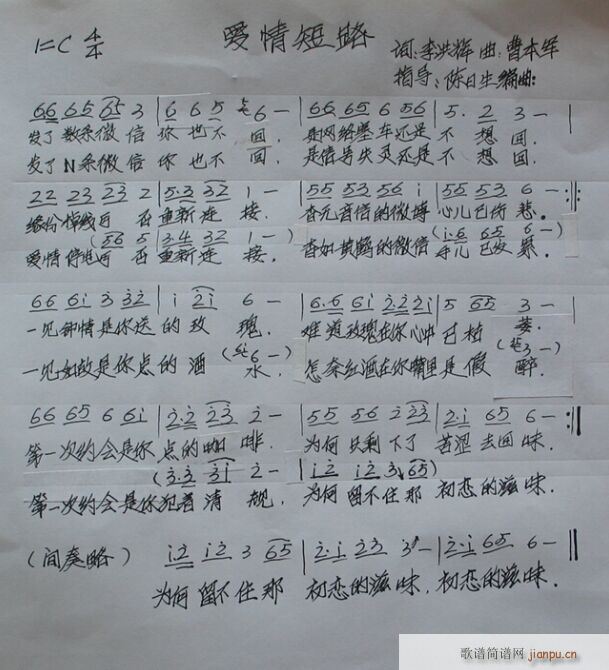 1=C 4/4 爱情短路 词:李洪辉 曲:曹本军
指导:陈日生 编曲:
66 65 65 3 | 6 6 5 6 - | 66 65 6 56 | 5. 2 3 - |
发了数条微信 你也不回. 是网络塞车还是不想回.
发了N条微信 你也不回. 是信号失灵还是不想回.
22 23 23 2 | 5·3 32 1 - | 55 53 56 i | 55 53 6 - :||
缘份掉线后 再重新连接. 杳无音信的微博 心儿已伤悲.
(56 5 | 3·4 32 1 -) (i·6 65 6 -)
爱情停电后 再重新连接. 杳如黄鹤的微信
66 6i 3 32 | i 2i 6 - | 6·6 6i 2·22i | 5 65 3 - |
一见钟情是你送的玫瑰. 难道玫瑰在你心中已枯萎.
(6 -) (3 -)
一见如故是你点的酒水. 怎奈红酒在你嘴里是假醉.
66 65 6 6i | 2·2 23 2 - | 55 56 2 23 | 2·i 65 6 - :||
第一次约会是你点的咖啡. 为何只剩下了苦涩去回味.
(3·3 3i 2 - | i2 i2 3 65)
第一次约会是你犯着清规. 为何留不住那初恋的滋味.
(间奏略) i2 i2 3 65 | 2·i 23 3 - | 2·i 65 6 - ||
为何留不住那 初恋的滋味, 初恋的滋味.
歌谱简谱网
jianpu.cn